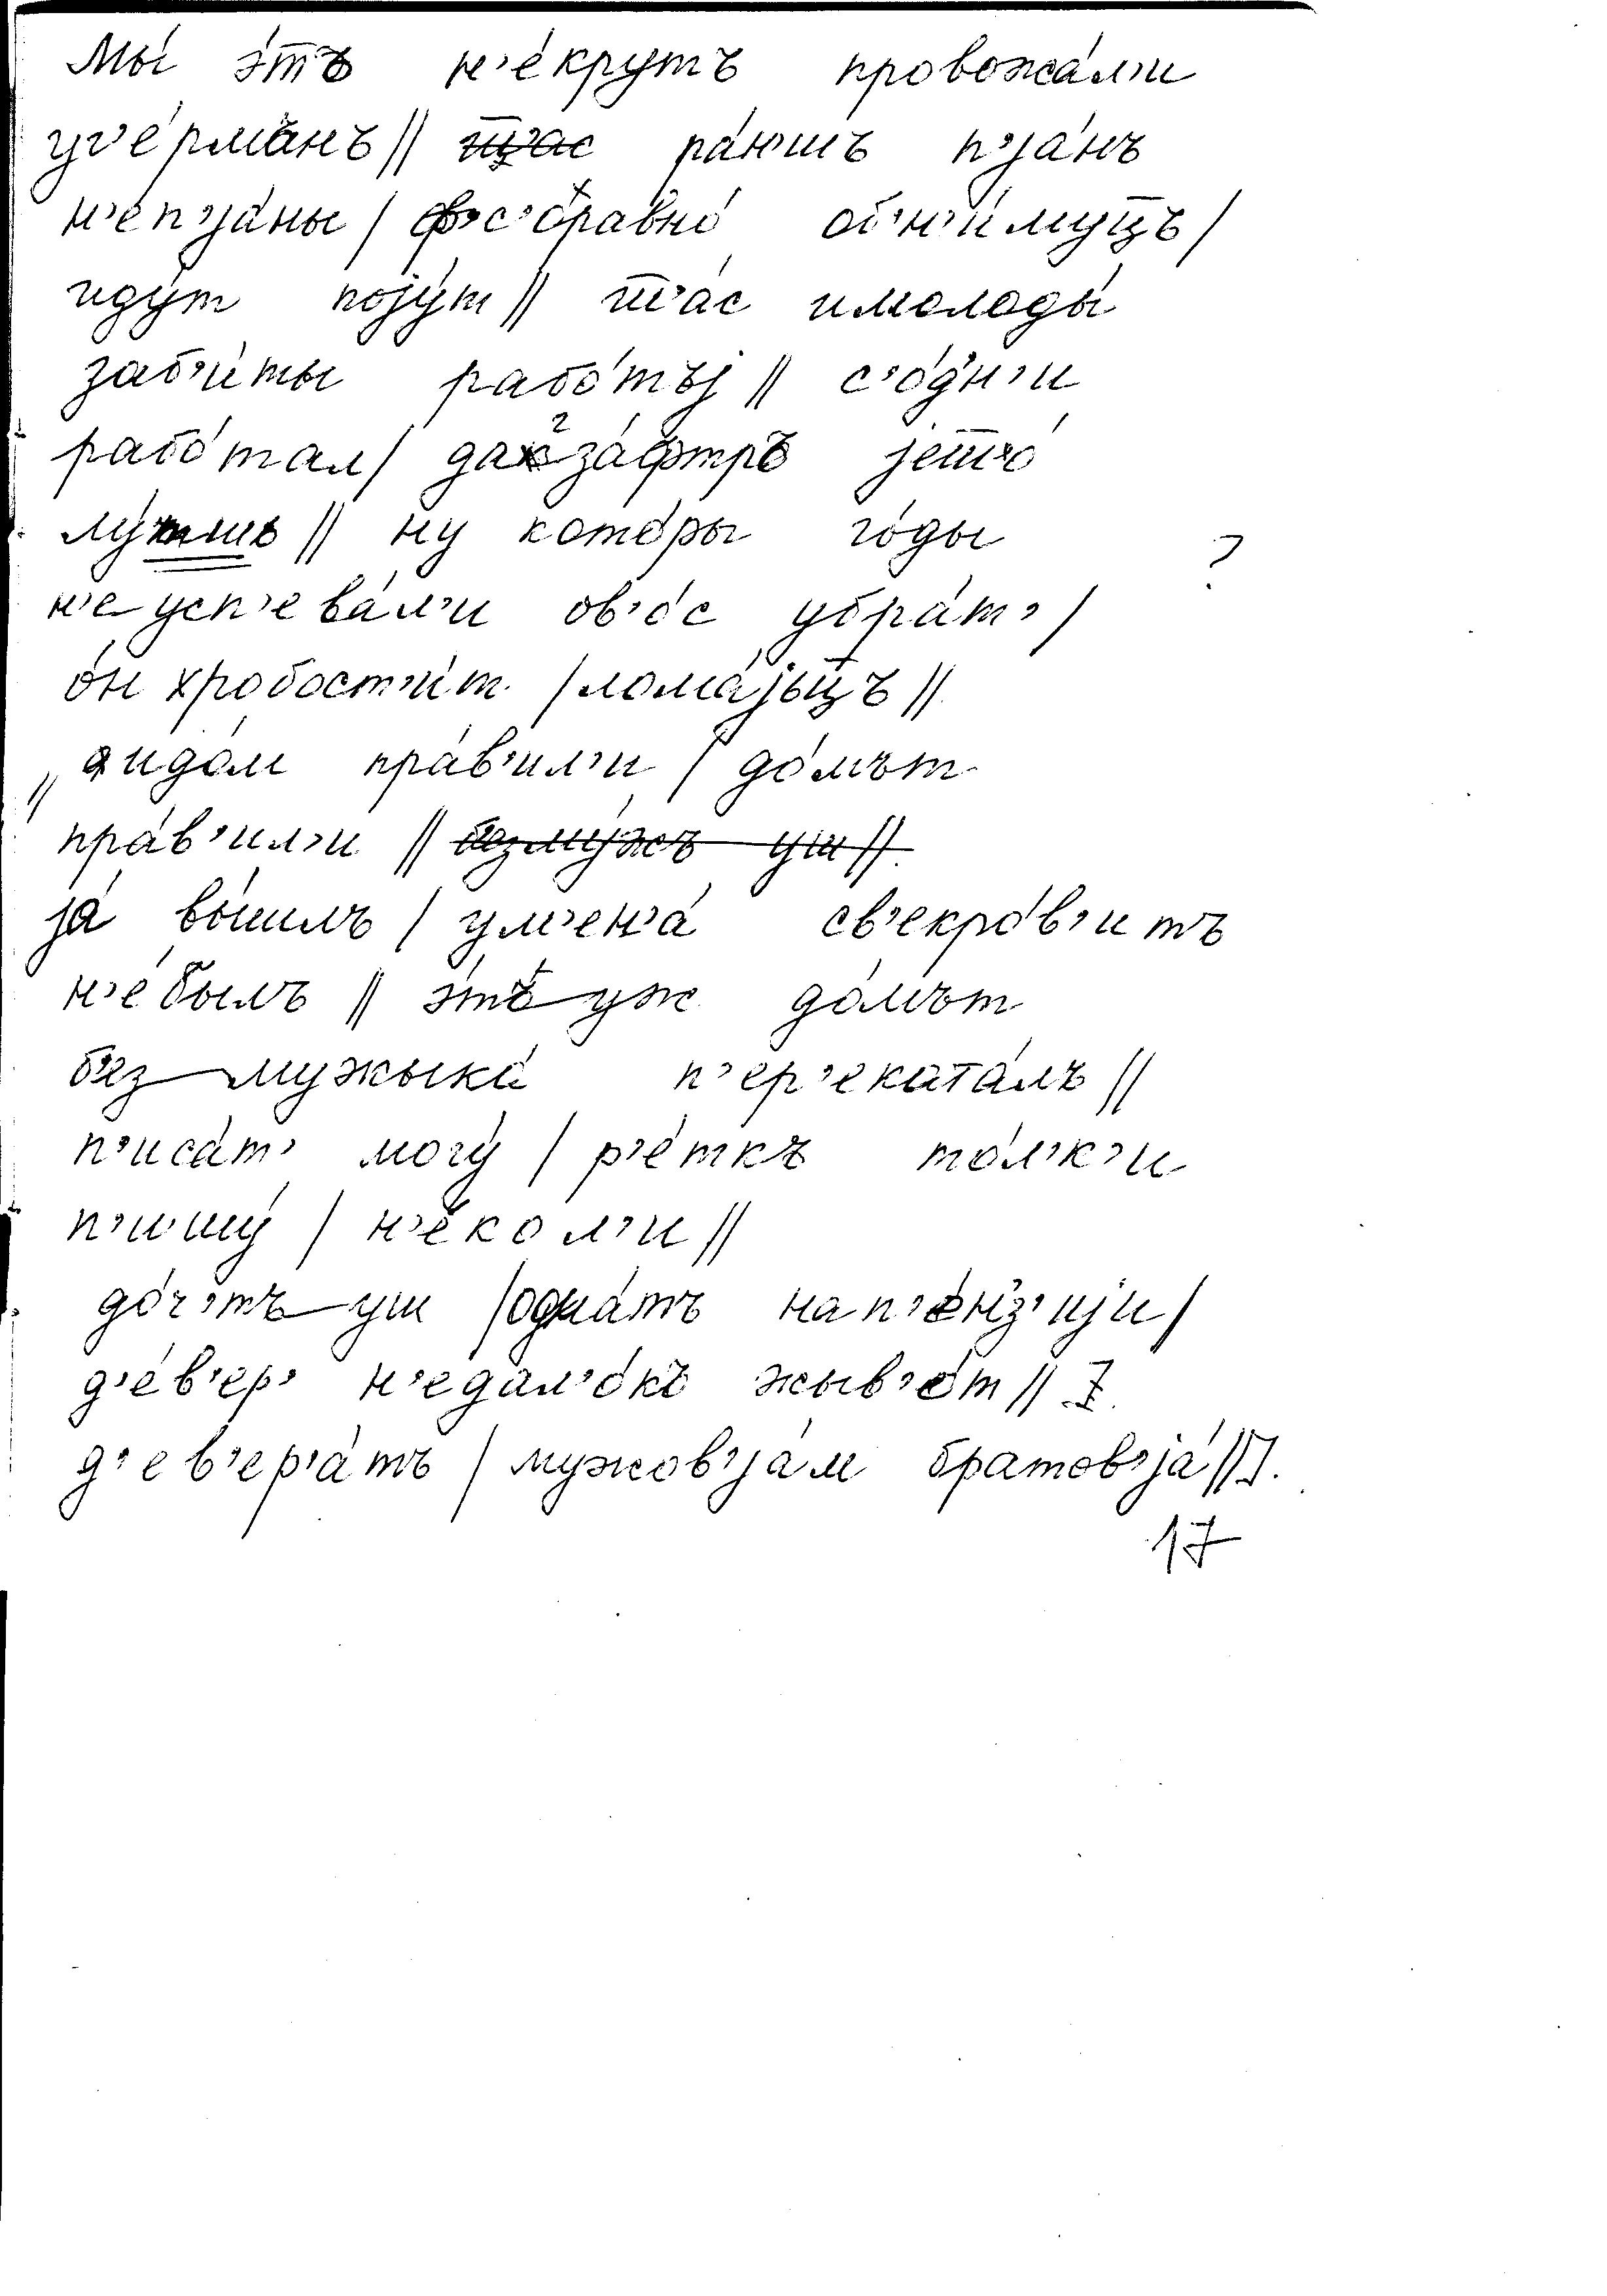 Мы́ э́тъ н'е́крутъ провожа́л'и
уγ'е́рма́нъ // тш'ас ра́н'шъ п'jа́нъ
н'е́п'jаны / фс'о́равно́ обн'и́муцъ /
иду́т пojу́т // тш'а́с имолоды́
заб'и́ты рабо́тъj // с'о́дн'и
рабо́тал / да за́фтръ jетш'о́
лу́тшъ // ну кото́ры го́ды
н'е успева́л'и ов'о́с убра́т' /
о́н хробост'и́т / лома́jьцъ //
// идо́м пра́в'ил'и / до́мът
пра́в'ил'и // безму́жъ уш //
jа́ вы́шлъ / ум'ен'а́ св'екро́в'итъ
н'е́ былъ // э́тъ уж до́мът
без мужыка́ п'ер'ека́та́лъ //
п'иса́т' могу́ / р'е́ткъ то́л'к'и
п'ишу́ / н'е́кол'и //
до́ч'тъ уш / одна́тъ нап'е́нз'иjи /
д'е́в'ер' н'едал'о́къ жыв'о́т //
д'ев'ер'а́тъ / мужов'jа́м братов'jа́ //
17